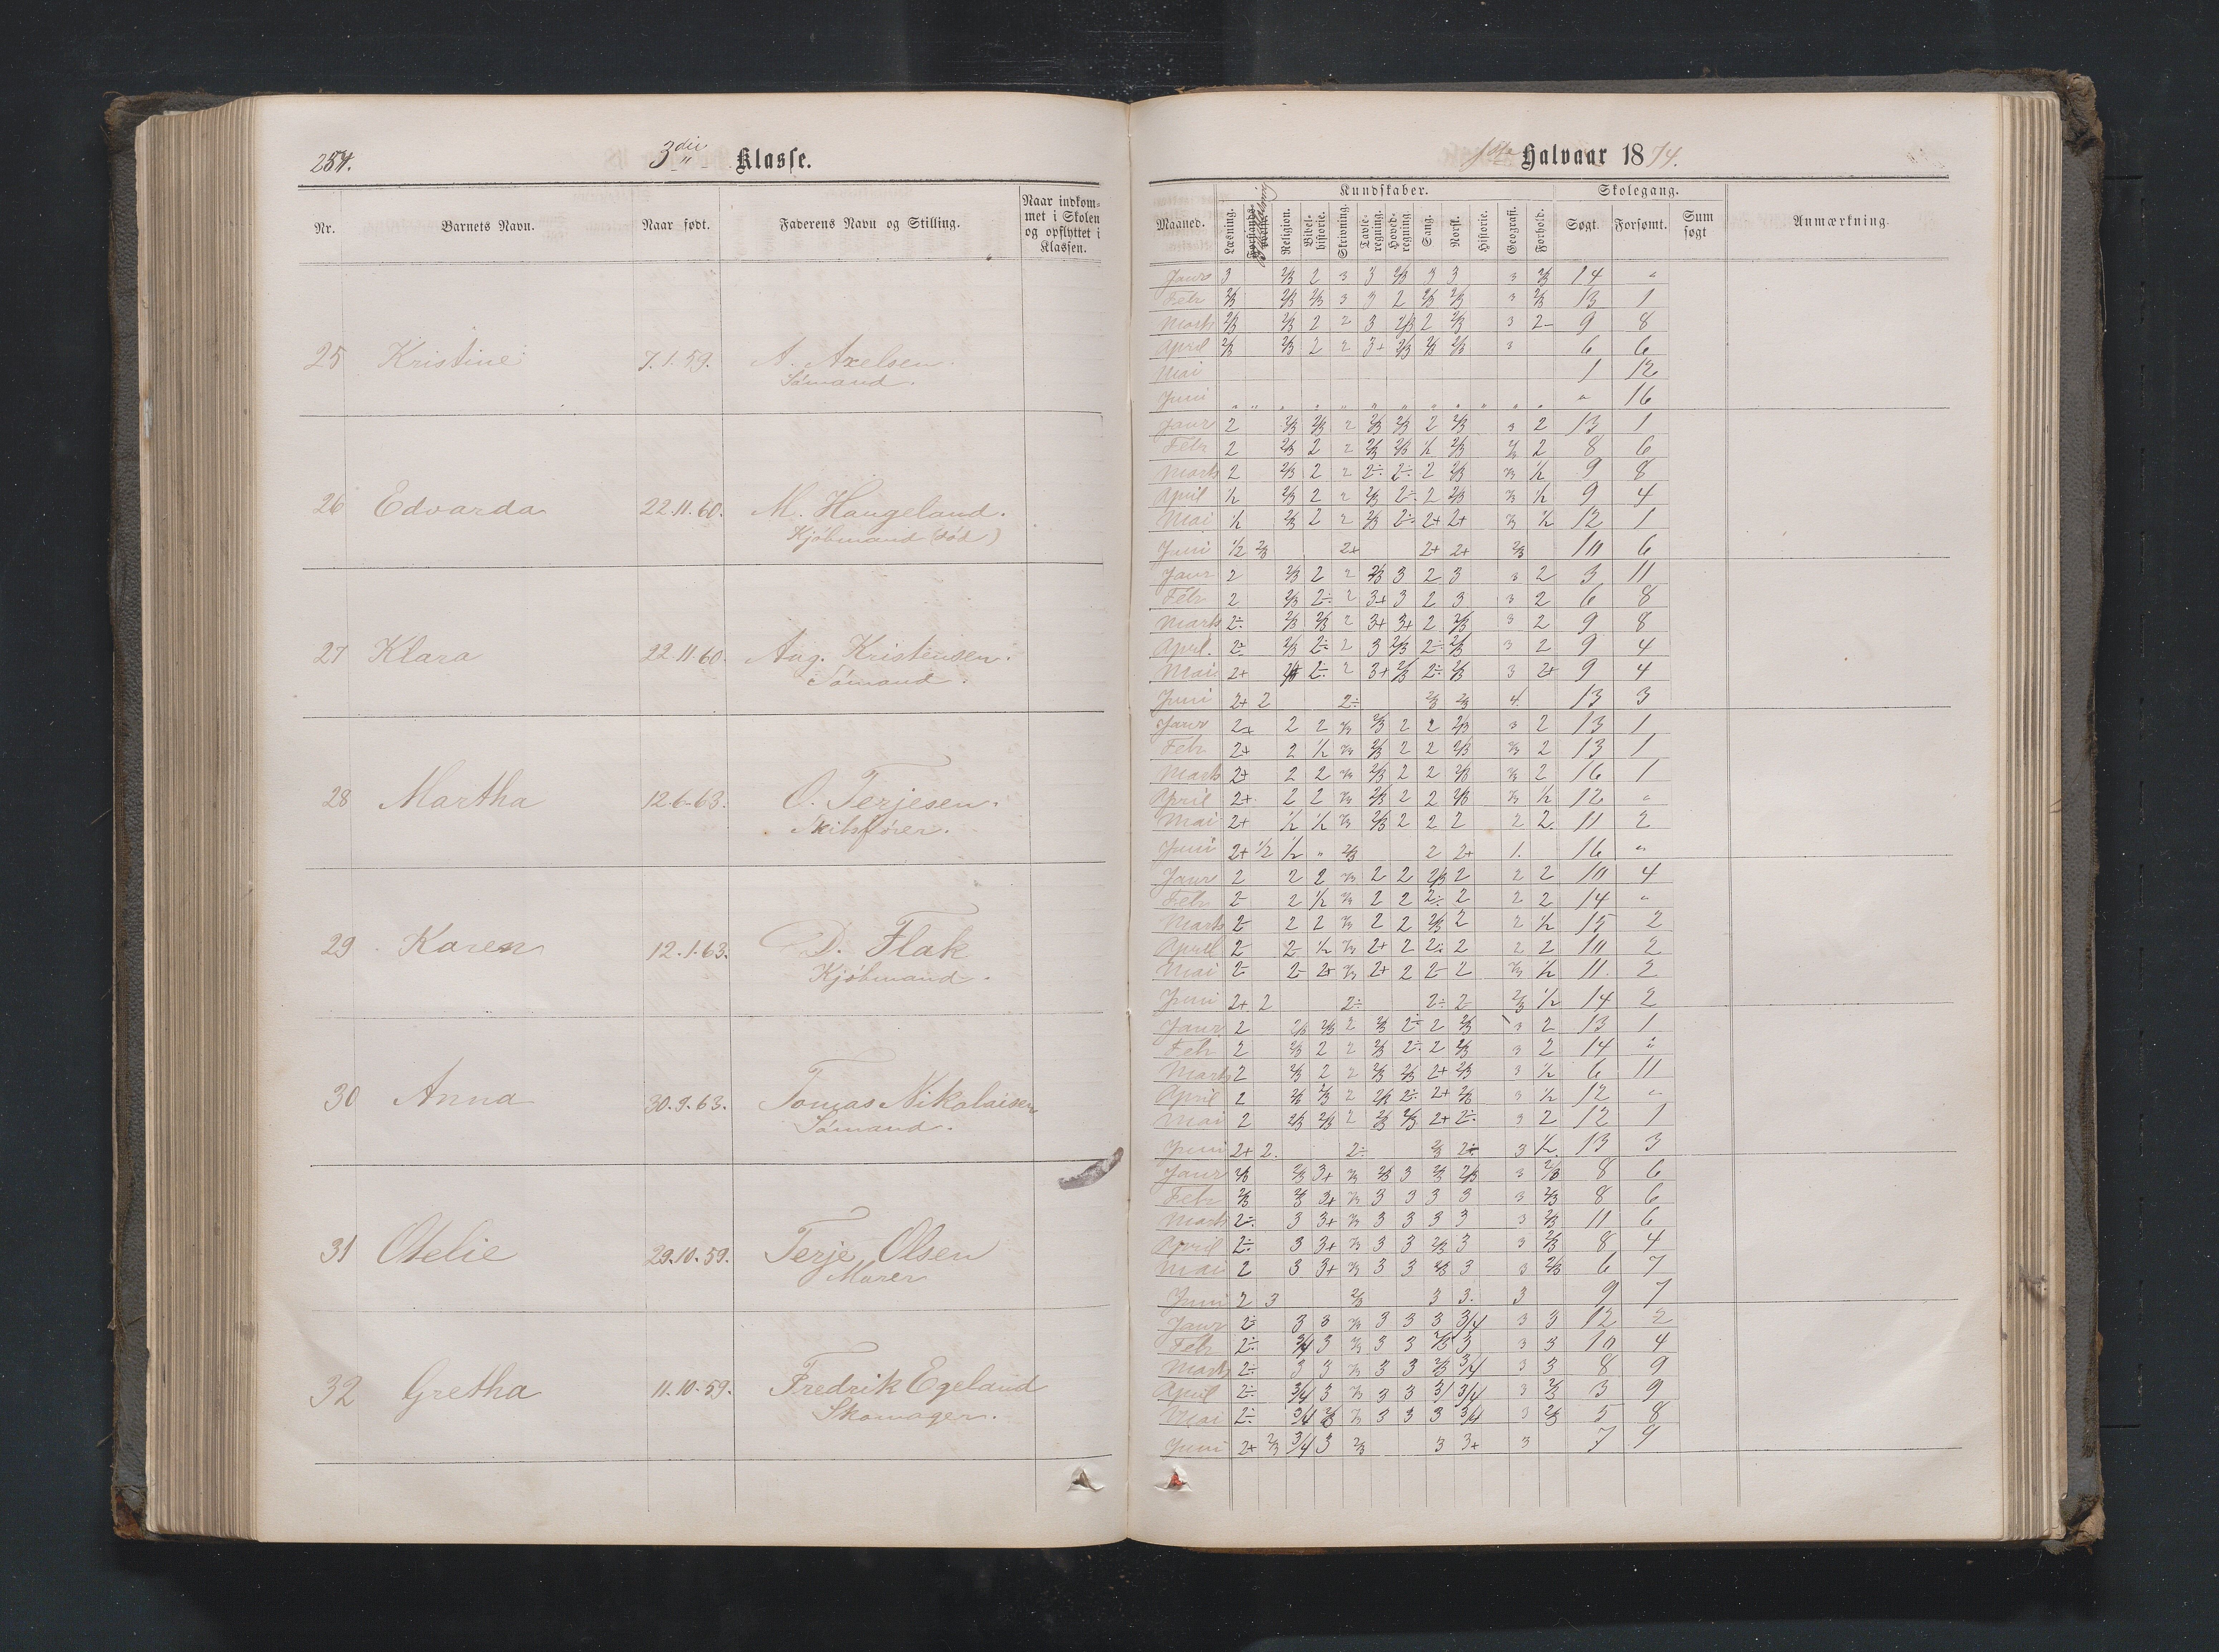 254.
3die Klasse.
Nr.
Barnets Navn.
Naar født.
Faderens Navn og Stilling.
Naar indkom-
met i Skolen
og opflyttet i
Klassen.
25 Kristine 7.1.59. A. Axelsen.
Sømand.
26 Edvarda 22.11.60. M. Haugeland.
Kjøbmand (død)
27 Klara 22.11.60. Aug. Kristensen.
Sømand.
28 Martha 12.6.63. O. Terjesen.
Skibsfører.
29 Karen 12.1.63. D. Flak
Kjøbmand.
30 Anna 30.9.63. Tomas Nikolaisen
Sømand.
31 Otelie 29.10.59. Terje Olsen
Murer
32 Gretha 11.10.59. Fredrik Egeland
Skomager.
1ste Halvaar 1874.
Maaned.
Kundskaber.
Læsning.
Religion.
Bibel-
historie.
Skrivning.
Tavle-
regning.
Hoved-
regning.
Sang.
Norsk.
Historie.
Geografi.
Forhold.
Skolegang.
Søgt.
Forsømt.
Sum
søgt
Anmærkning.
Janr 3 2/3 2 3 3 2/3 3 3 3 2/3 14 "
Febr 2/3 2/3 2/3 3 3 2 2/3 2/3 3 2/3 13 1
Marts 2/3 2/3 2 2 3 2/3 2 2/3 3 2- 9 8
April 2/3 2/3 2 2 3+ 2/3 2/3 2/3 3 6 6
Mai 1 12
Juni " " " " " " " " " " " " " 16
Janr 2 2/3 2/3 2 2/3 2/3 2 2/3 3 2 13 1
Febr 2 2/3 2 2 2/3 2/3 1/2 2/3 2/3 2 8 6
Marts 2 2/3 2 2 2÷ 2÷ 2 2/3 2/3 1/2 9 8
April 1/2 2/3 2 2 2/3 2÷ 2 2/3 2/3 1/2 9 4
Mai 1/2 2/3 2 2 2/3 2÷ 2+ 2+ 2/3 1/2 12 1
Juni 1/2 2/3 2+ 2+ 2+ 2/3 10 6
Janr 2 2/3 2 2 2/3 3 2 3 3 2 3 11
Febr 2 2/3 2÷ 2 3+ 3 2 3 3 2 6 8
Marts 2÷ 2/3 2/3 2 3+ 3+ 2 2/3 3 2 9 8
April. 2÷ 2/3 2÷ 2 3 2/3 2÷ 2/3 3 2 9 4
Mai 2+ 2÷ 2 3+ 2/3 2÷ 2/3 3 2+ 9 4
Juni 2+ 2 2÷ 2/3 2/3 4. 13 3
Janr 2+ 2 2 2/3 2/3 2 2 2/3 3 2 13 1
Febr 2+ 2 1/2 2/3 2/3 2 2 2/3 2/3 2 13 1
Marts 2+ 2 2 2/3 2/3 2 2 2/3 2/3 2 16 1
April 2+ 2 2 2/3 2/3 2 2 2/3 2/3 1/2 12 "
Mai 2+ 1/2 1/2 2/3 2/3 2 2 2 2 2. 11 2
Juni 2+ 1/2 1/2 " 2/3 2 2+ 1. 16 "
Janr 2 2 2 2/3 2 2 2/3 2 2 2 10 4
Febr 2- 2 1/2 2/3 2 2 2÷ 2 2 2 14 "
Marts 2- 2 2 2/3 2 2 2/3 2 2 1/2 15 2
April 2- 2- 1/2 2/3 2+ 2 2÷ 2 2 2 10 2
Mai 2- 2- 2+ 2/3 2+ 2 2- 2 2/3 1/2 11. 2
Juni 2+ 2 2÷ 2÷ 2- 2/3 1/2 14 2
Janr 2 2/3 2/3 2 2/3 2÷ 2 2/3 3 2 13 1
Febr 2 2/3 2 2 2/3 2÷ 2 2/3 3 2 14 "
Marts 2 2/3 2 2 2/3 2/3 2+ 2/3 3 1/2 6 11
April 2 2/3 2/3 2 2/3 2÷ 2+ 2/3 3 1/2 12 "
Mai 2 2/3 2/3 2 2/3 2/3 2+ 2÷ 3 2 12 1
Juni 2+ 2. 2÷ 2/3 2÷ 3 1/2. 13 3
Janr 2/3 2/3 3+ 2/3 2/3 3 2/3 2/3 3 2/3 8 6
Febr 2/3 2/3 3+ 2/3 3 3 3 3 3 2/3 8 6
Marts 2÷ 3 3+ 2/3 3 3 3 3 3 2/3 11 6
April 2÷ 3 3+ 2/3 3 3 2/3 3 3 2/3 8 4
Mai 2 3 3+ 2/3 3 3 2/3 3 3 2/3 6 7
Juni 2 3 2/3 3 3. 3 9 7
Janr 2÷ 3 3 2/3 3 3 3 3/4 3 3 12 2
Febr 2÷ 3/4 3 2/3 3 3 2/3 3 3 3 10 4
Marts 2÷ 3 3 2/3 3 3 2/3 3/4 3 3 8 9
April 2÷ 3/4 3 2/3 3 3 3/4 3 2/3 3 9
Mai 2÷ 3/4 2/3 2/3 3 3 3 3/4 3 2/3 5 8
Juni 2+ 2/3 3/4 3 2/3 3 3+ 3 7 9